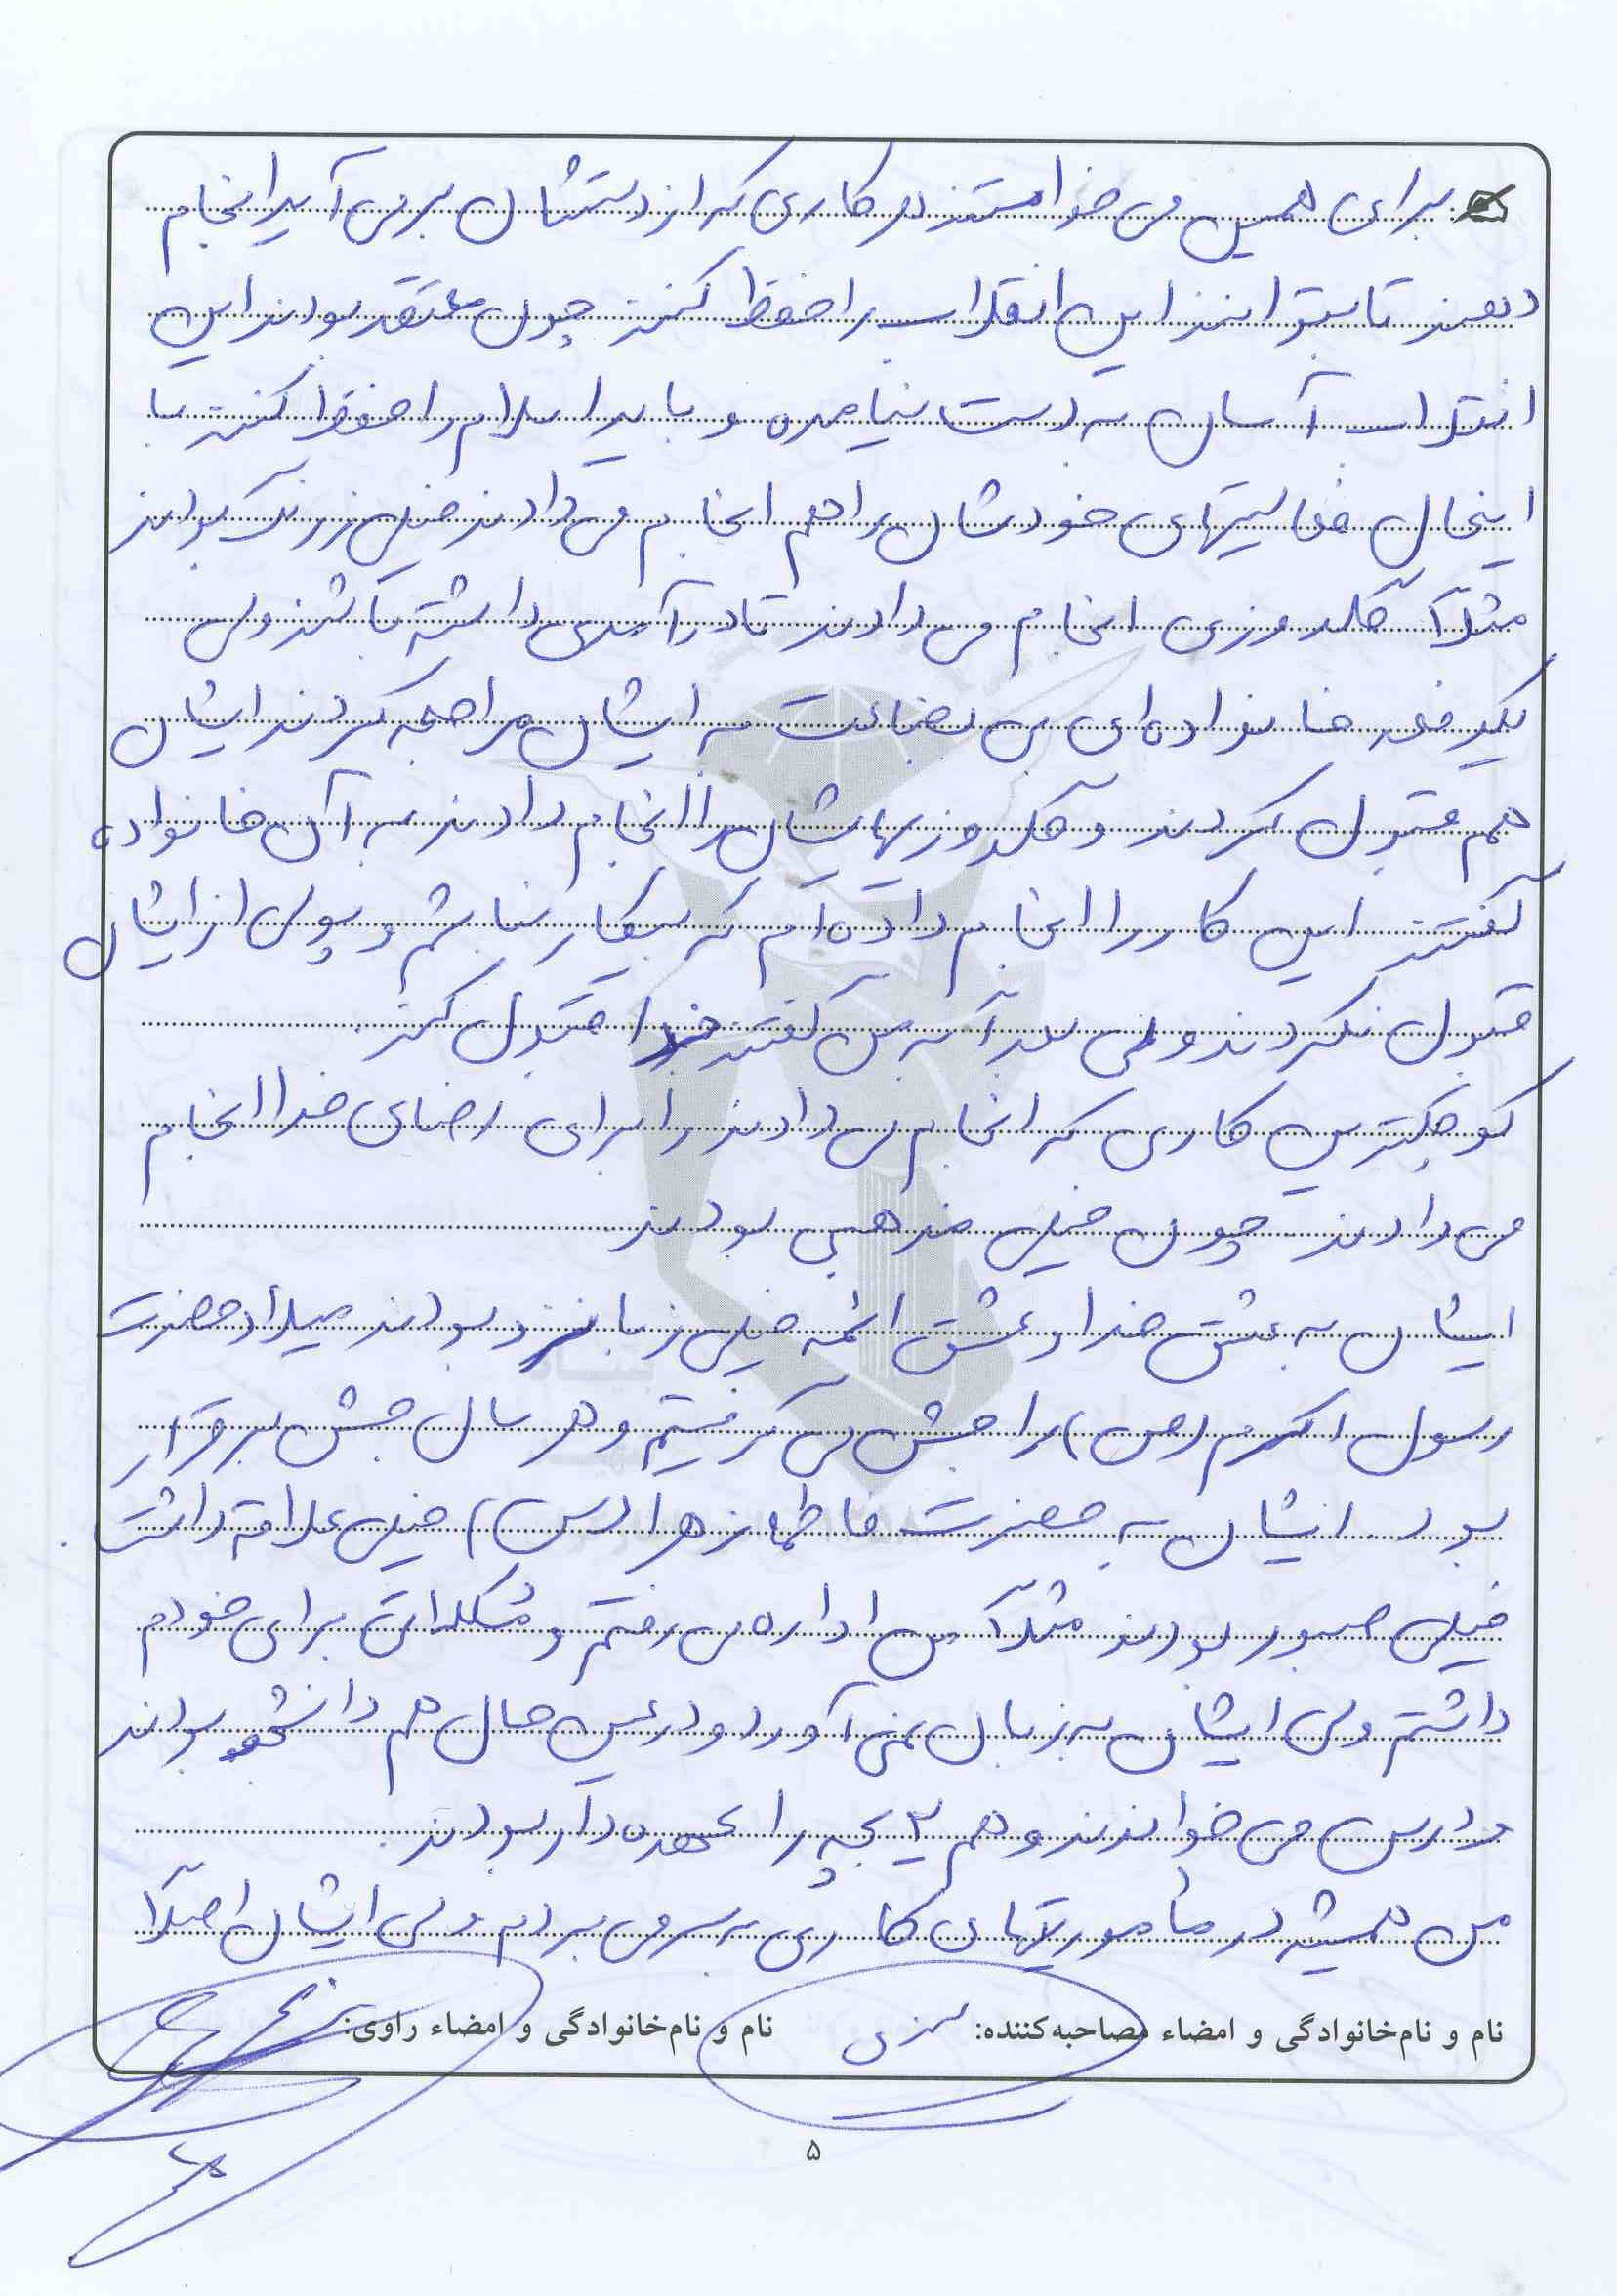 برای همین می خواستند هر کاری که از دستشان برمی آید انجام
دهند تا بتوانند این انقلاب را حفظ کنند چون معتقد بودند این
انقلاب آسان به دست نیامده و باید اسلام را حفظ کنند با
اینحال فعالیتهای خودشان را هم انجام می دادند خیلی زرنگ بودند
مثلاً گلدوزی انجام می دادند تا درآمدی داشته باشند ولی
یکدفعه خانواده ای بی بضاعت به ایشان مراجعه کردند ایشان
هم قبول کردند و گلدوزیهایشان را انجام دادند به آن خانواده
گفتند این کار را انجام داده ام که بیکار نباشم و پولی از ایشان
قبول نکردند ولی بعداً به من گفتند خدا قبول کند.
کوچکترین کاری که انجام می دادند را برای رضای خدا انجام
می دادند چون خیلی مذهبی بودند
ایشان به عشق خدا و عشق ائمه خیلی زبانزد بودند میلاد حضرت
رسول اکرم (ص) را جشن می گرفتیم و هر سال جشن برقرار
بود. ایشان به حضرت فاطمه زهرا (س) خیلی علاقه داشت.
خیلی صبور بودند مثلاً من اداره می رفتم و مشکلاتی برای خودم
داشتم ولی ایشان به زبان نمی آورد و در عین حال هم دانشجو بودند
و درس می خواندند و هم ۲ بچه را عهده دار بودند.
من همیشه در مأموریتهای کاری به سر می بردم ولی ایشان اصلاً
نام و نام‌خانوادگی و امضاء مصاحبه‌کننده: نام و نام‌خانوادگی و امضاء راوی:
۵